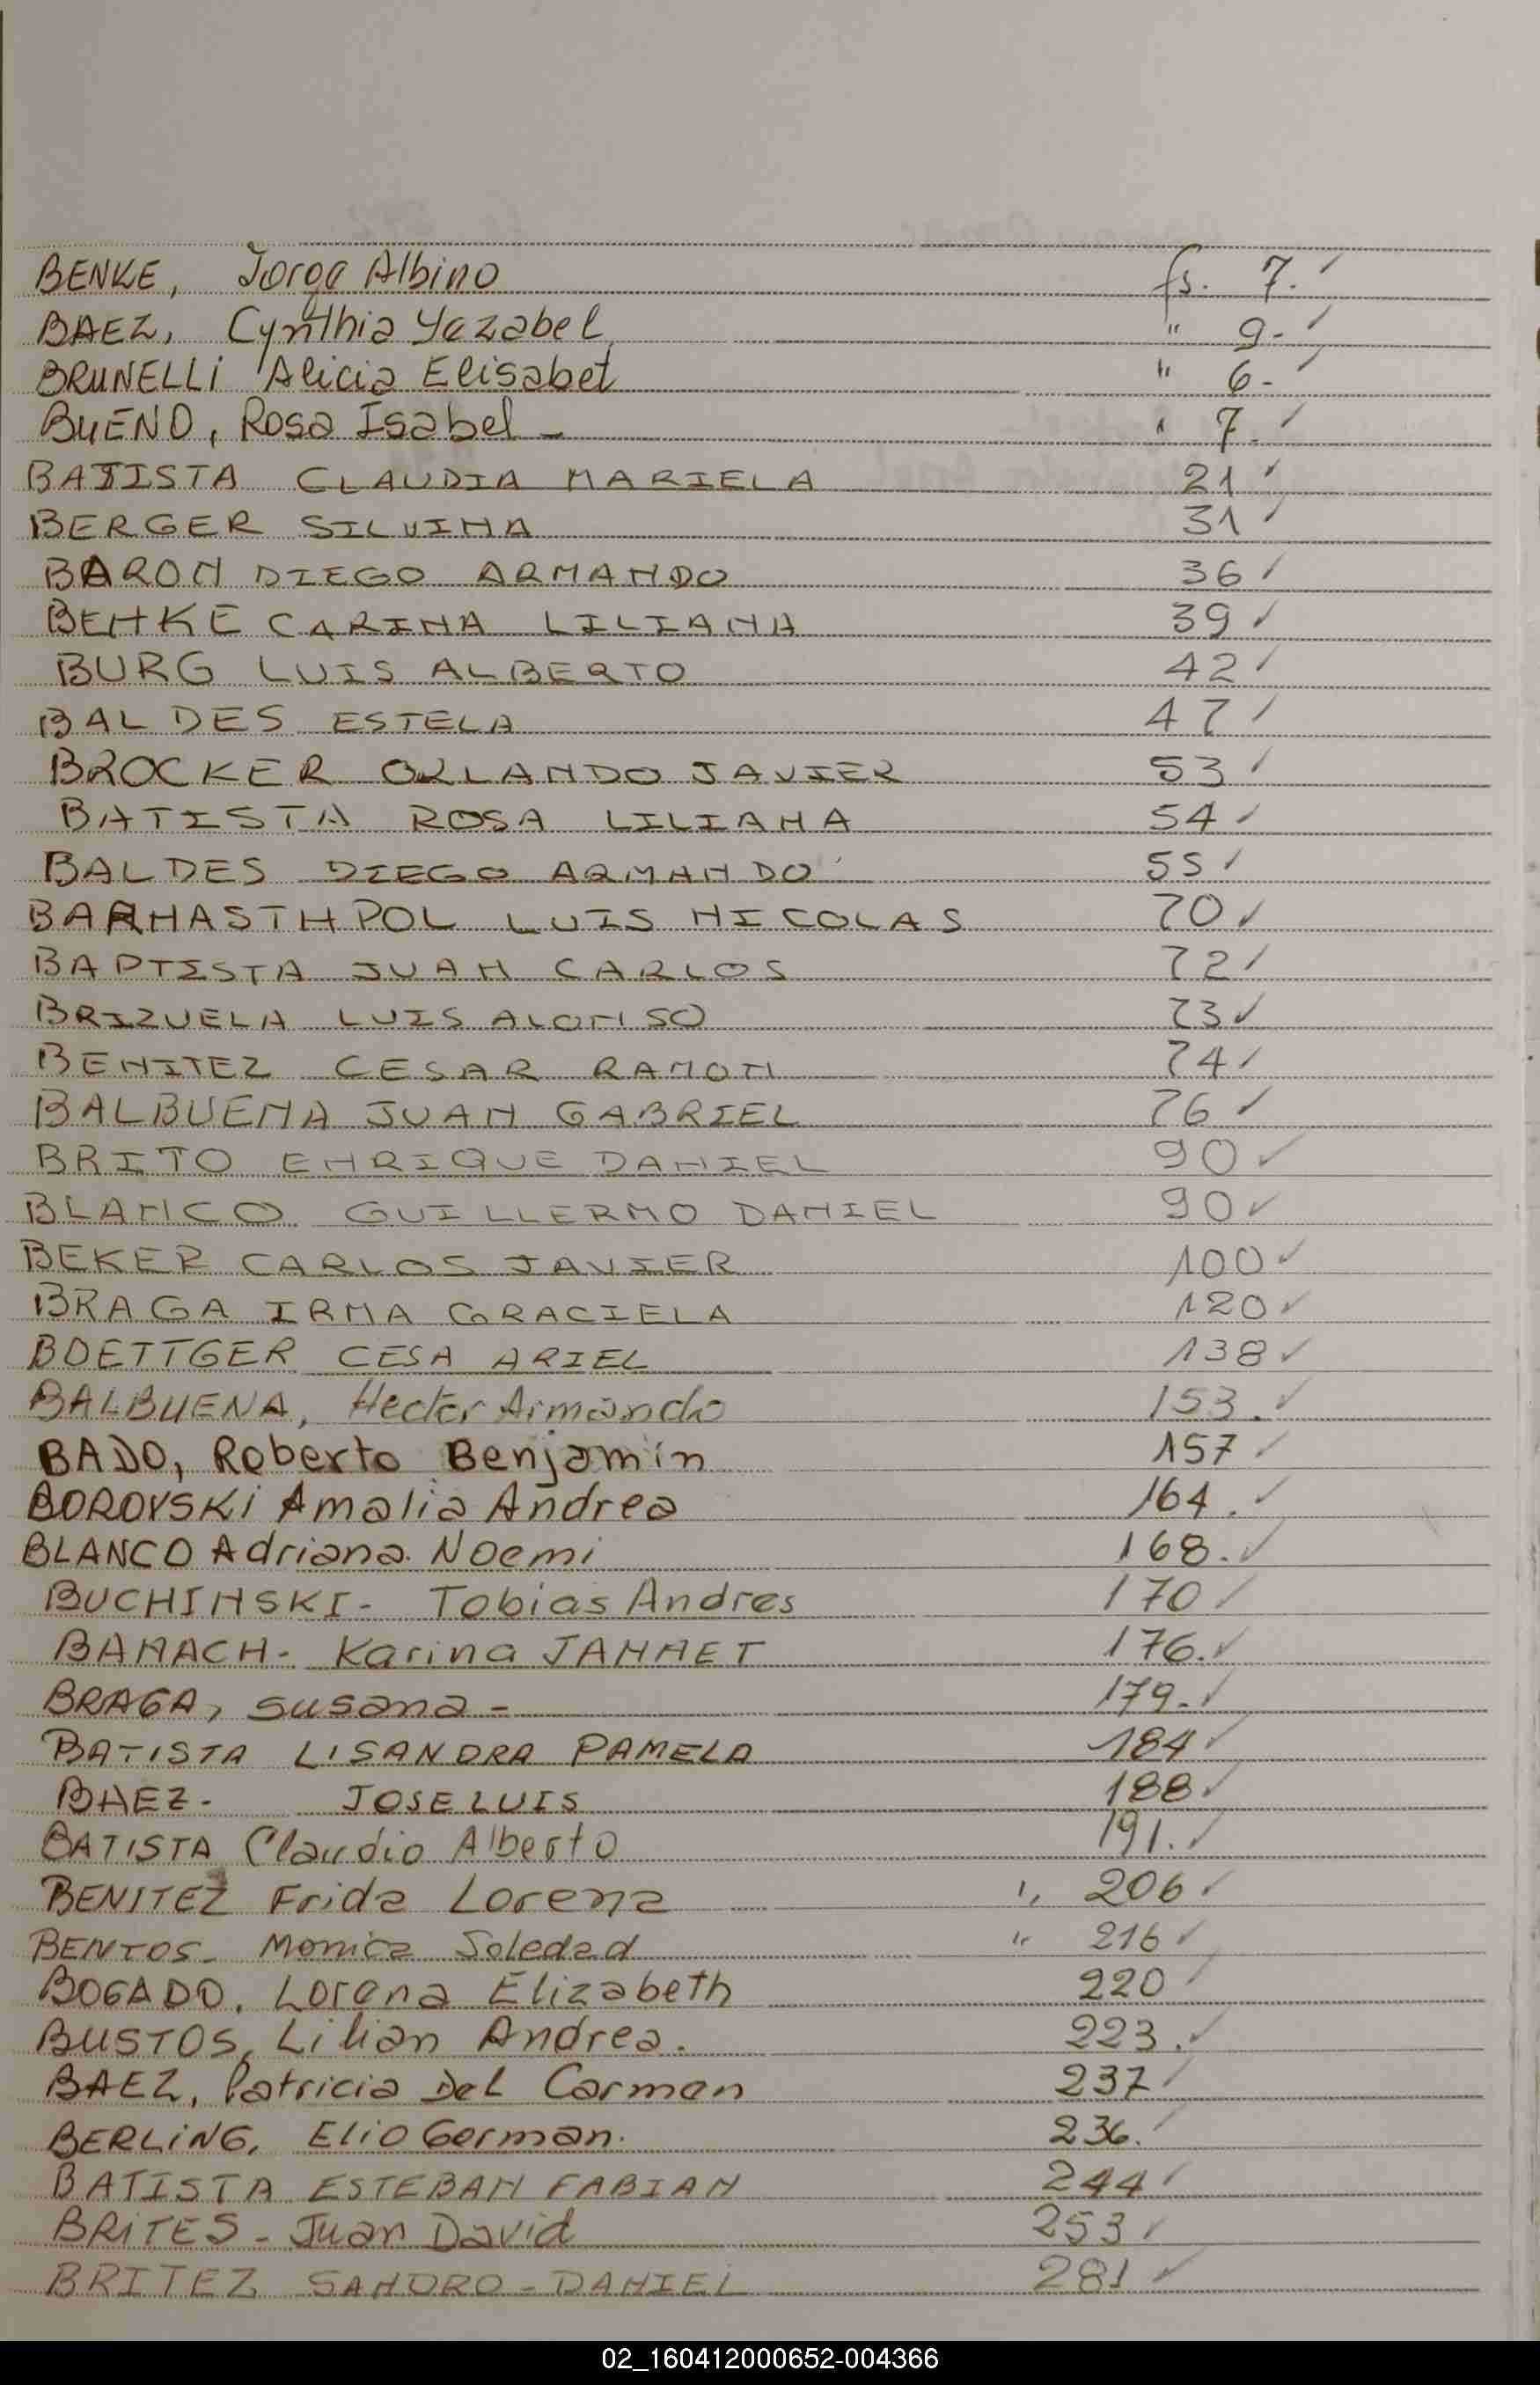 BENKE, Jorge Albino fs. 7. ✓
BAEZ, Cynthia Yezabel " 9- ✓
BRUNELLi Alicia Elisabet " 6- ✓
BUENO, Rosa Isabel - " 7. ✓
BATISTA CLAUDIA MARIELA 21 ✓
BERGER SILVINA 31 ✓
BARON DIEGO ARMANDO 36 ✓
BENKE CARINA LILIANA 39 ✓
BURG LUIS ALBERTO 42 ✓
BALDES ESTELA 47 ✓
BROCKER ORLANDO JAVIER 53 ✓
BATISTA ROSA LILIANA 54 ✓
BALDES DIEGO ARMANDO 55 ✓
LUIS NICOLAS 70 ✓
BAPTISTA JUAN CARLOS 72 ✓
BRIZUELA LUIS ALONSO 73 ✓
BENITEZ CESAR RAMON 74 ✓
BALBUENA JUAN GABRIEL 76 ✓
BRITO ENRIQUE DANIEL 90 ✓
BLANCO GUILLERMO DANIEL 90 ✓
BEKER CARLOS JAVIER 100 ✓
BRAGA IRMA GRACIELA 120 ✓
BOETTGER CESA ARIEL 138 ✓
BALBUENA, Hector Armando 153. ✓
BADO, Roberto Benjamin 157 ✓
BOROVSKi Amalia Andrea 164. ✓
BLANCO Adriana Noemi 168. ✓
BUCHINSKI- Tobias Andres 170 ✓
BANACH- Karina JANNET 176. ✓
BRAGA, Susana - 179- ✓
BATISTA LISANDRA PAMELA 184 ✓
BAEZ- JOSE LUIS 188 ✓
BATISTA Claudio Alberto 191. ✓
BENITEZ Frida Lorena " 206 ✓
BENTOS- Monica Soledad " 216 ✓
BOGADO, Lorena Elizabeth 220 ✓
BUSTOS, Lilian Andrea. 223. ✓
BAEZ, Patricia Del Carmen 237 ✓
BERLiNG, Elio German. 236. ✓
BATISTA ESTEBAN FABIAN 244 ✓
BRiTES - Juan David 253 ✓
BRITEZ SANDRO - DANIEL 281 ✓
02_160412000652-004366